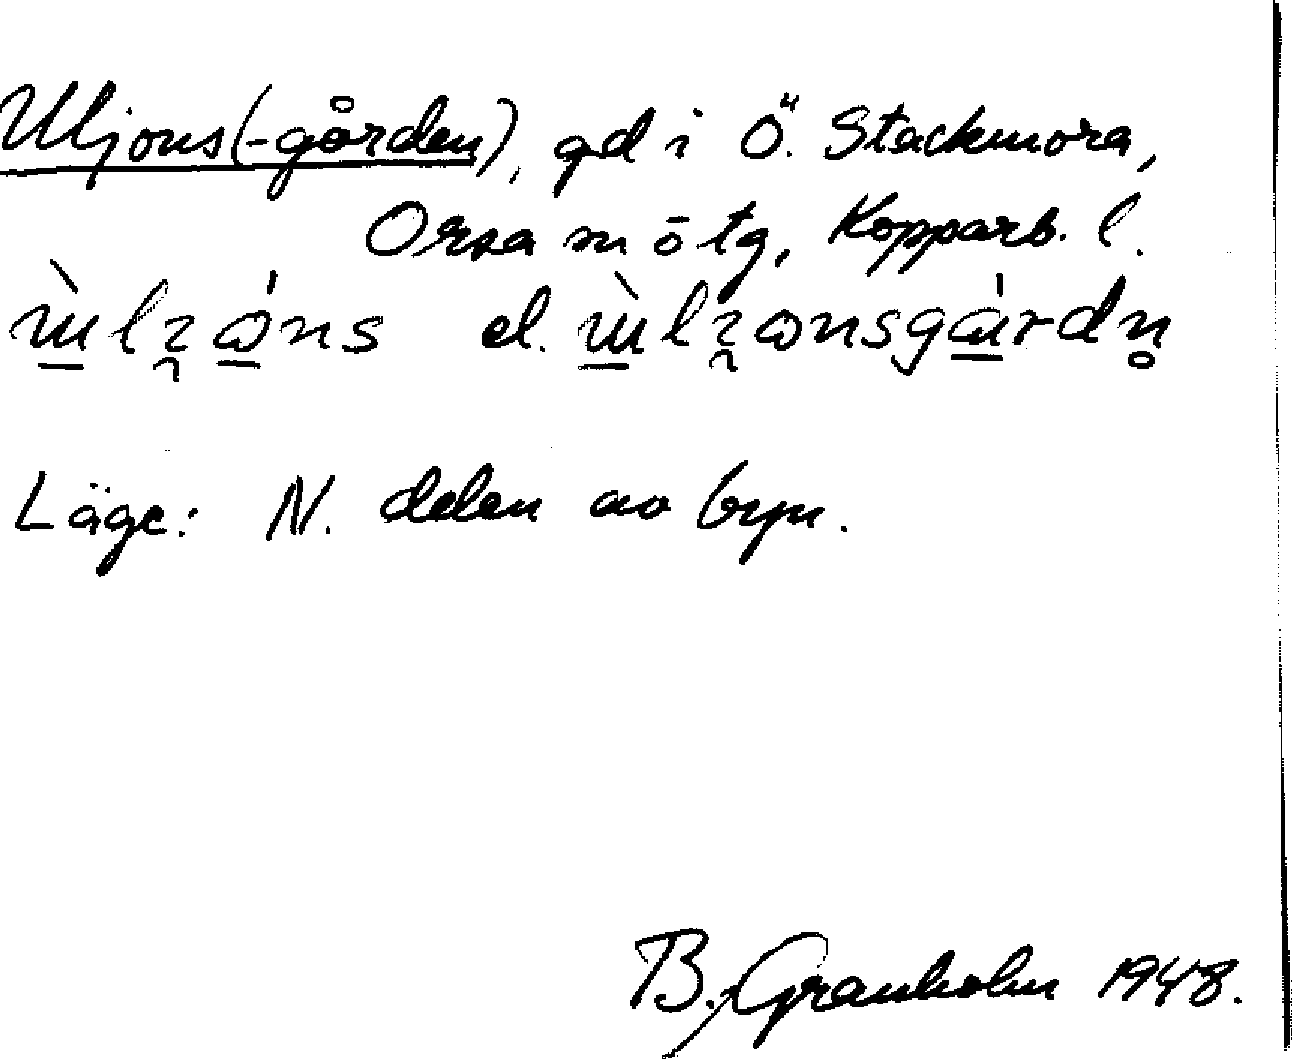 Uljons(-gården), gd i Ö. Stackmora,
Orsa sn ö tg, Kopparb. l.
el.
Läge: N. delen av byn.
B. Granholm 1948.